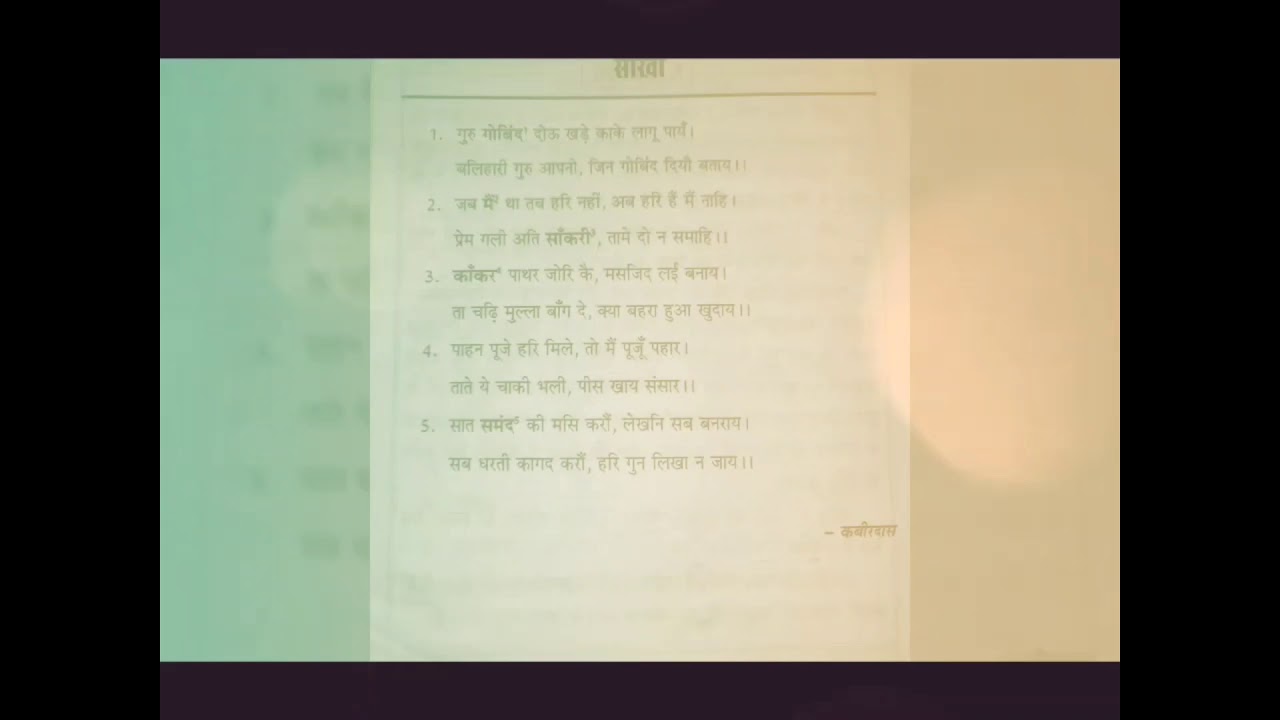 साखी
1. गुरु गोबिंद¹ दोऊ खड़े काके लागू पायँ।
बलिहारी गुरु आपनो, जिन गोबिंद दियौ बताय।।
2. जब मैं² था तब हरि नहीं, अब हरि हैं मैं नाहि।
प्रेम गली अति साँकरी³, तामे दो न समाहि।।
3. काँकर⁴ पाथर जोरि कै, मसजिद लई बनाय।
ता चढ़ि मुल्ला बाँग दे, क्या बहरा हुआ खुदाय।।
4. पाहन पूजे हरि मिले, तो मैं पूजूँ पहार।
ताते ये चाकी भली, पीस खाय संसार।।
5. सात समंद⁵ की मसि करौं, लेखनि सब बनराय।
सब धरती कागद करौं, हरि गुन लिखा न जाय।।
– कबीरदास